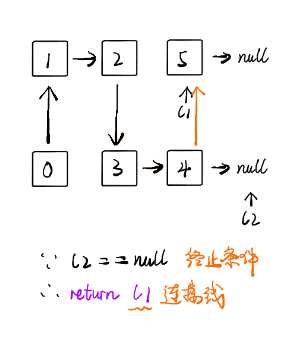 1 → 2 5 → null
↑
l1
0 3 → 4 → null
↑
l2
∵ l2 == null 终止条件
∴ return l1 连接线